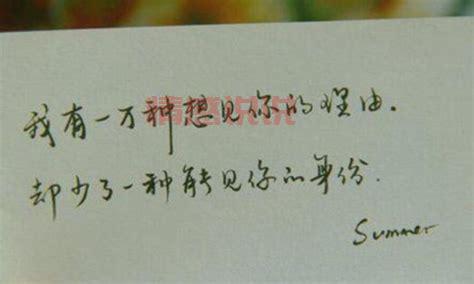 我有一万种想见你的理由.
情感说说
却少了一种能见你的身份.
Summer